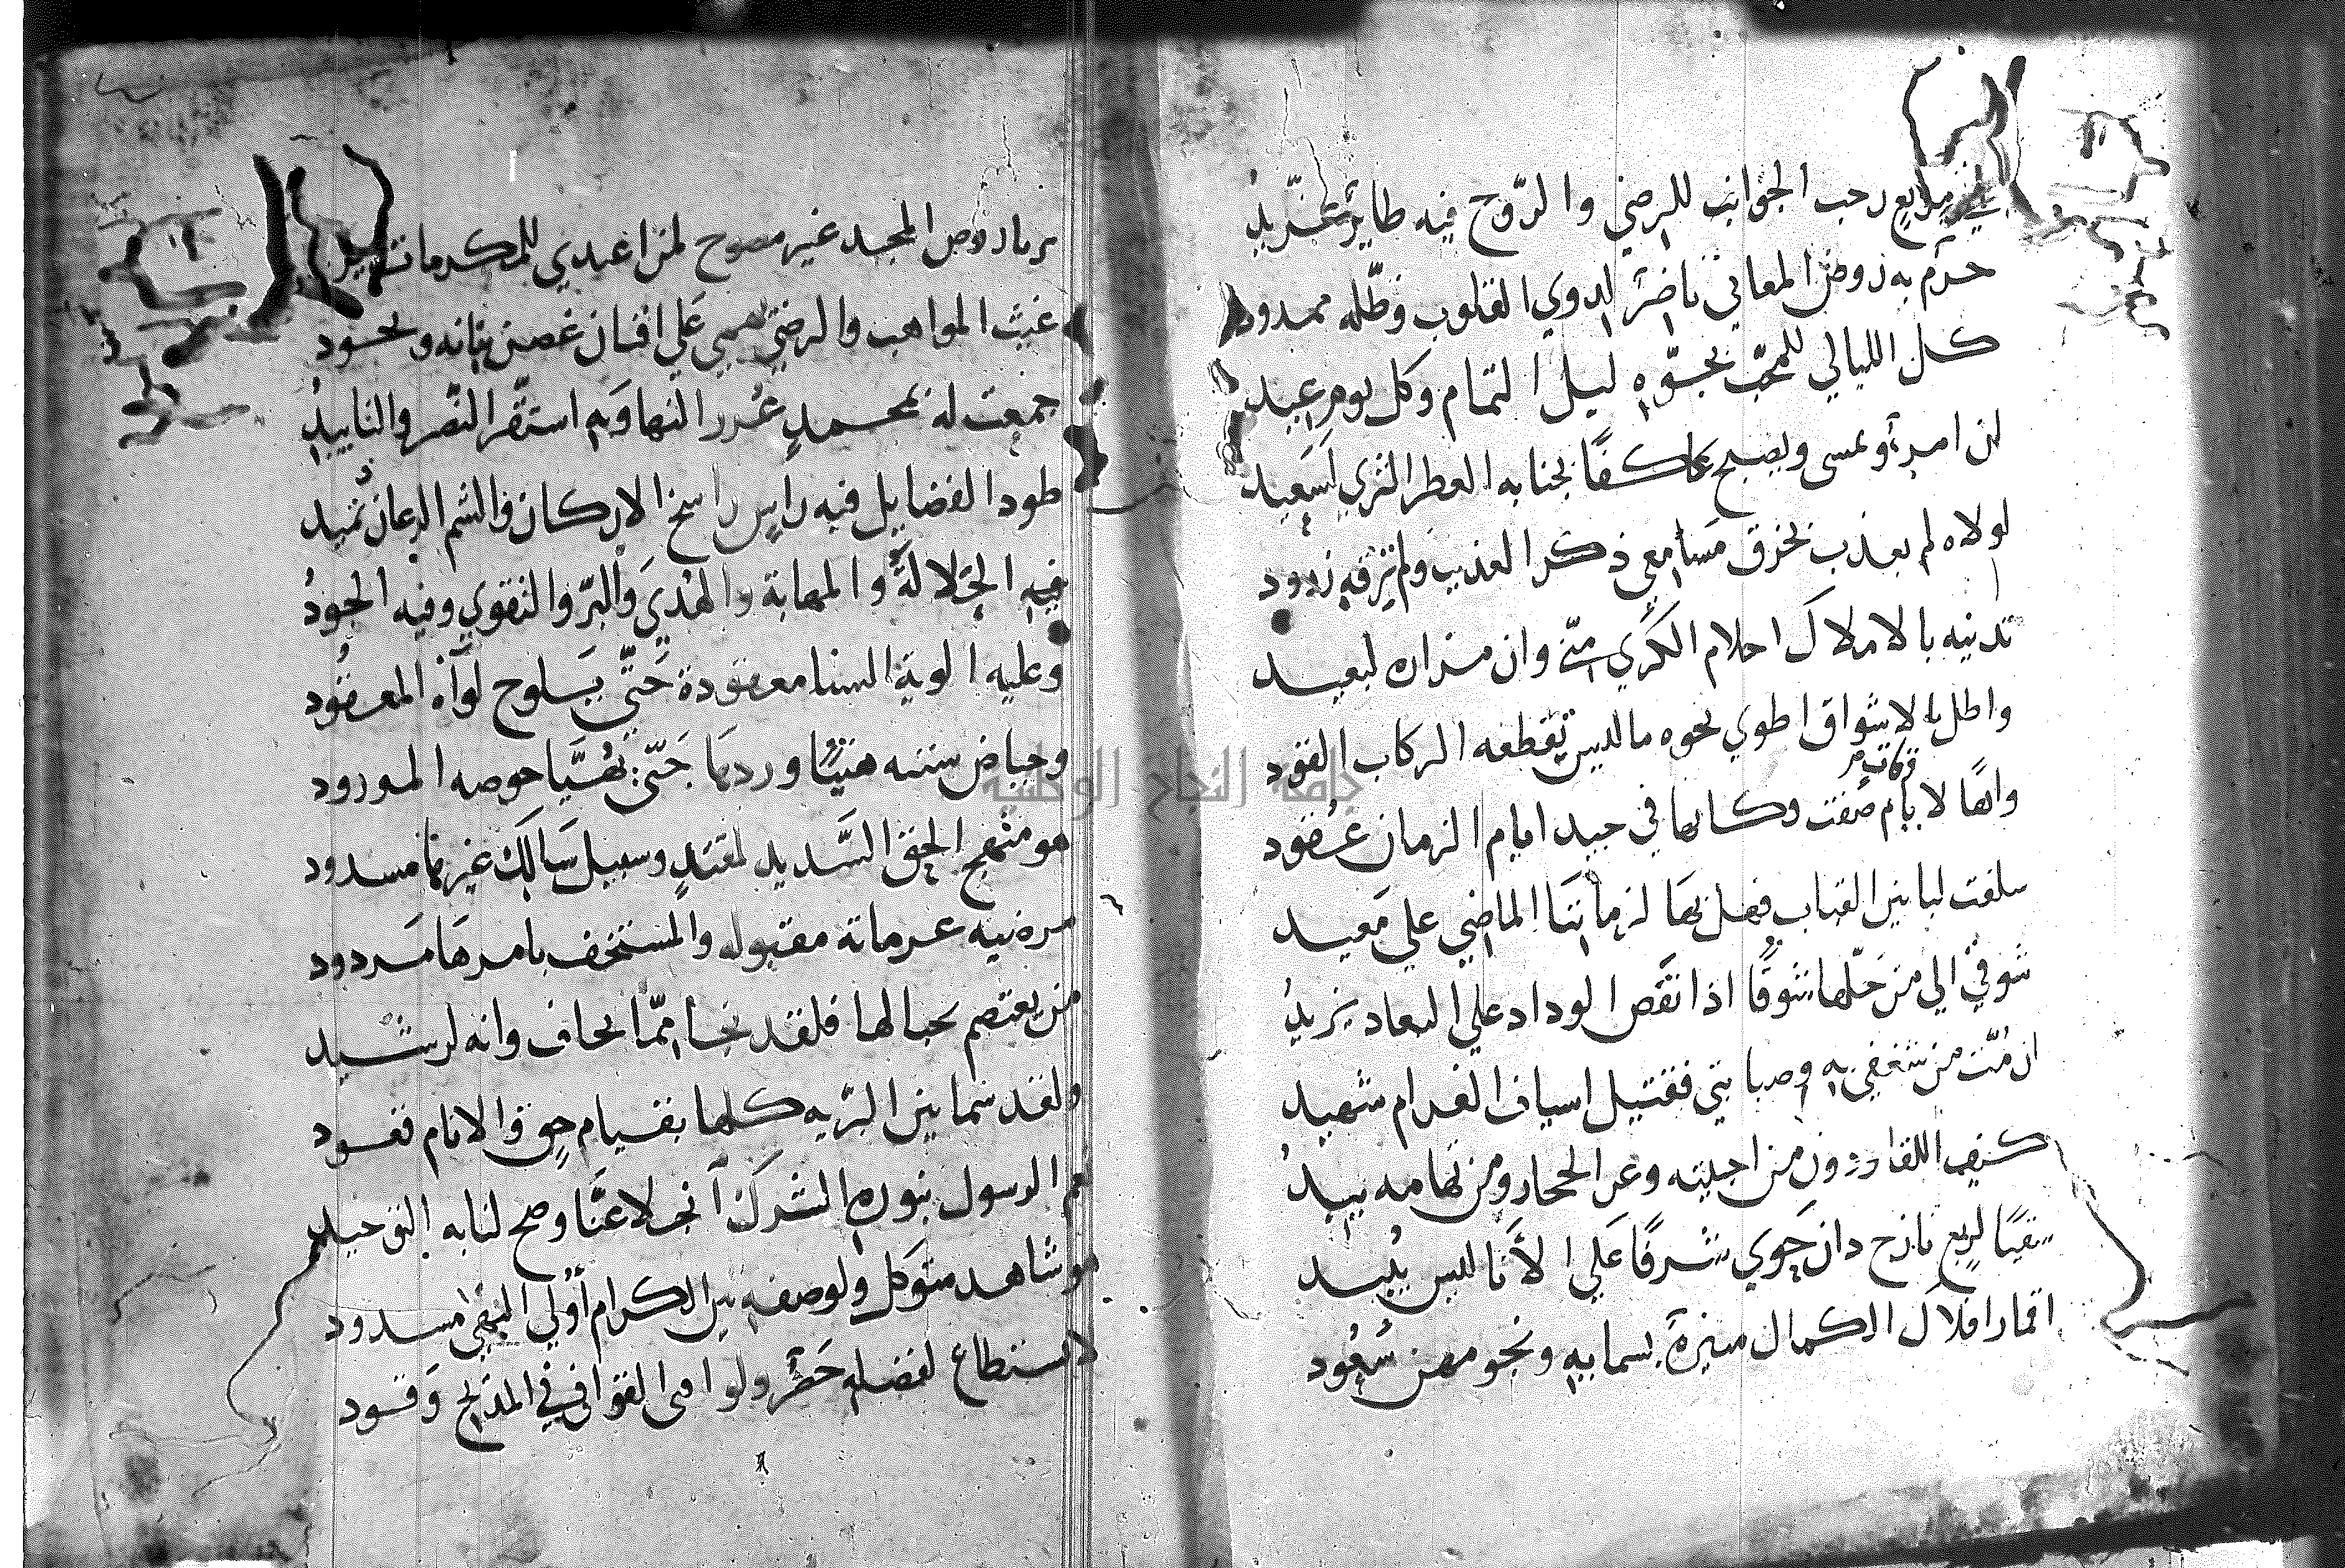 في مرابع رحب الجوانب للرضي والروح فيه طاير غريد
حرم به روض المعاني ناضر لدوي القلوب وظله ممدود
كل الليالي للمحب بجوه ليل التمام وكل يوم عيد
ان امرأ يمسي ويصبح عاكفا بجنابه العطر الثري لسعيد
لولاه لم يعذب بخرق مسامعي ذكر العذيب ولم ترقه زرود
تدنيه بالاملاك احلام الكري مني وان مزاره لبعيد
واظل بالاشواق اطوي نحوه ما ليس تقطعه الركاب القود
واها لايام صفت وكانها في جيد ايام الزمان عقود
سلفت لنا بين القباب فهل بها لزماننا الماضي علي معيد
شوقي الي من حلها شوقا اذا نقص الوداد علي البعاد يزيد
ان مت من شغفي به وصبابتي فقتيل اسياف الغرام شهيد
كيف اللقا ودون من احببته وعر الحجاز ومن تهامه بيد
سقيا لربع نازح دان حوي شرفا علي الاناء ليس يبيد
اقمار افلاك الكمال منيرة بسمايه ونجومهن سعود
برباه روض المجد غير مصوح لمن اغتدي للمكرمات
غيث المواهب والرضي يهمي علي افنان غصن بانه ويجود
جمعت له بمحمد غرر النها وبه استقر النصر والتاييد
طود الفضايل فيه راس راسخ الاركان والشم الرعان تميد
فيه الجلالة والمهابة والهدي والبر والتقوي وفيه الجود
وعليه الوية السنا معقودة حتي يلوح لوآه المعقود
وحياض سنته هنيا وردها حتي يهيا حوضه المورود
هو منهج الحق السديد لمقتد وسبيل سالك غيرها مسدود
مرضيه عزماته مقبوله والمستخف بامرها مردود
من يعتصم بحبالها فلقد نجا مما يخاف وانه لرشيد
ولقد سما بين البريه كلها بقيام حق والانام قعود
نعم الرسول بنوره الشرك آنجلا عنا وصح لنا به التوحيد
هو شاهد متوكل ولوصفه بين الكرام أولي النهي مسدود
لا يستطاع لفضله حصر ولو امي القوافي في المديح وقود
جامعة النجاح الوطنية